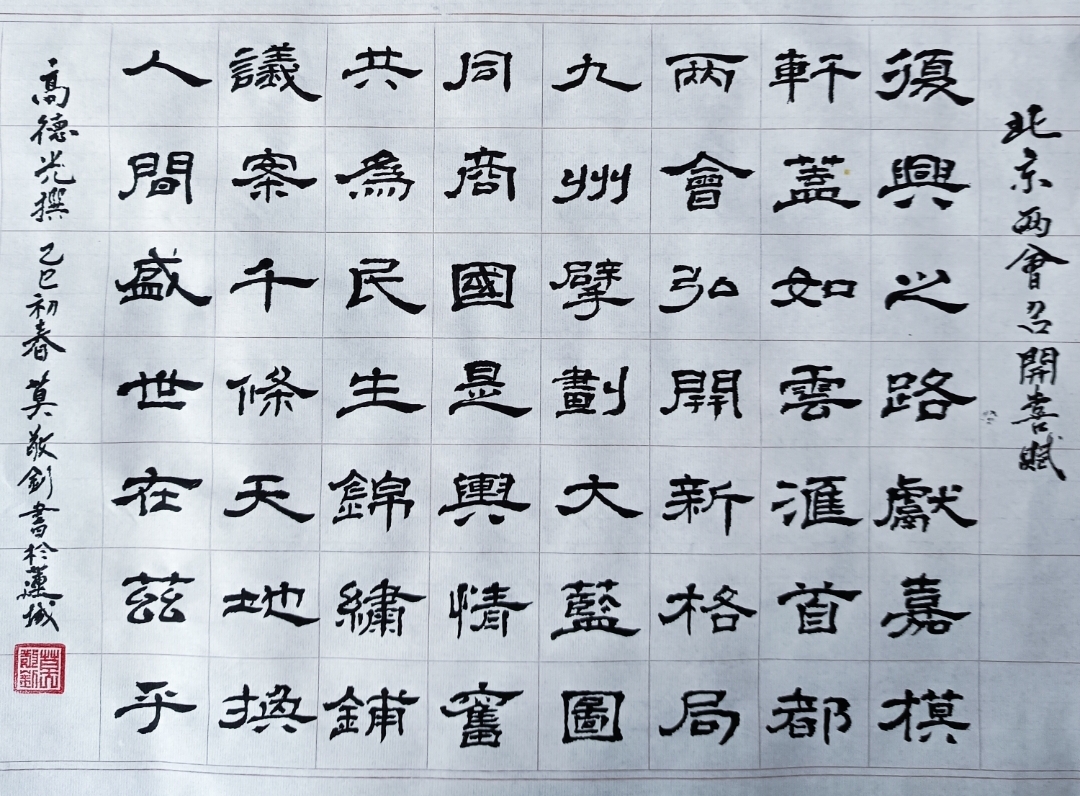 北京两會召開喜賦
復興之路獻嘉模
軒蓋如雲滙首都
兩會弘開新格局
九州擘劃大藍圖
同商國是輿情奮
共為民生錦繡鋪
議案千條天地換
人間盛世在茲乎
高德光撰 乙巳初春 莫敬釗書於蓮城